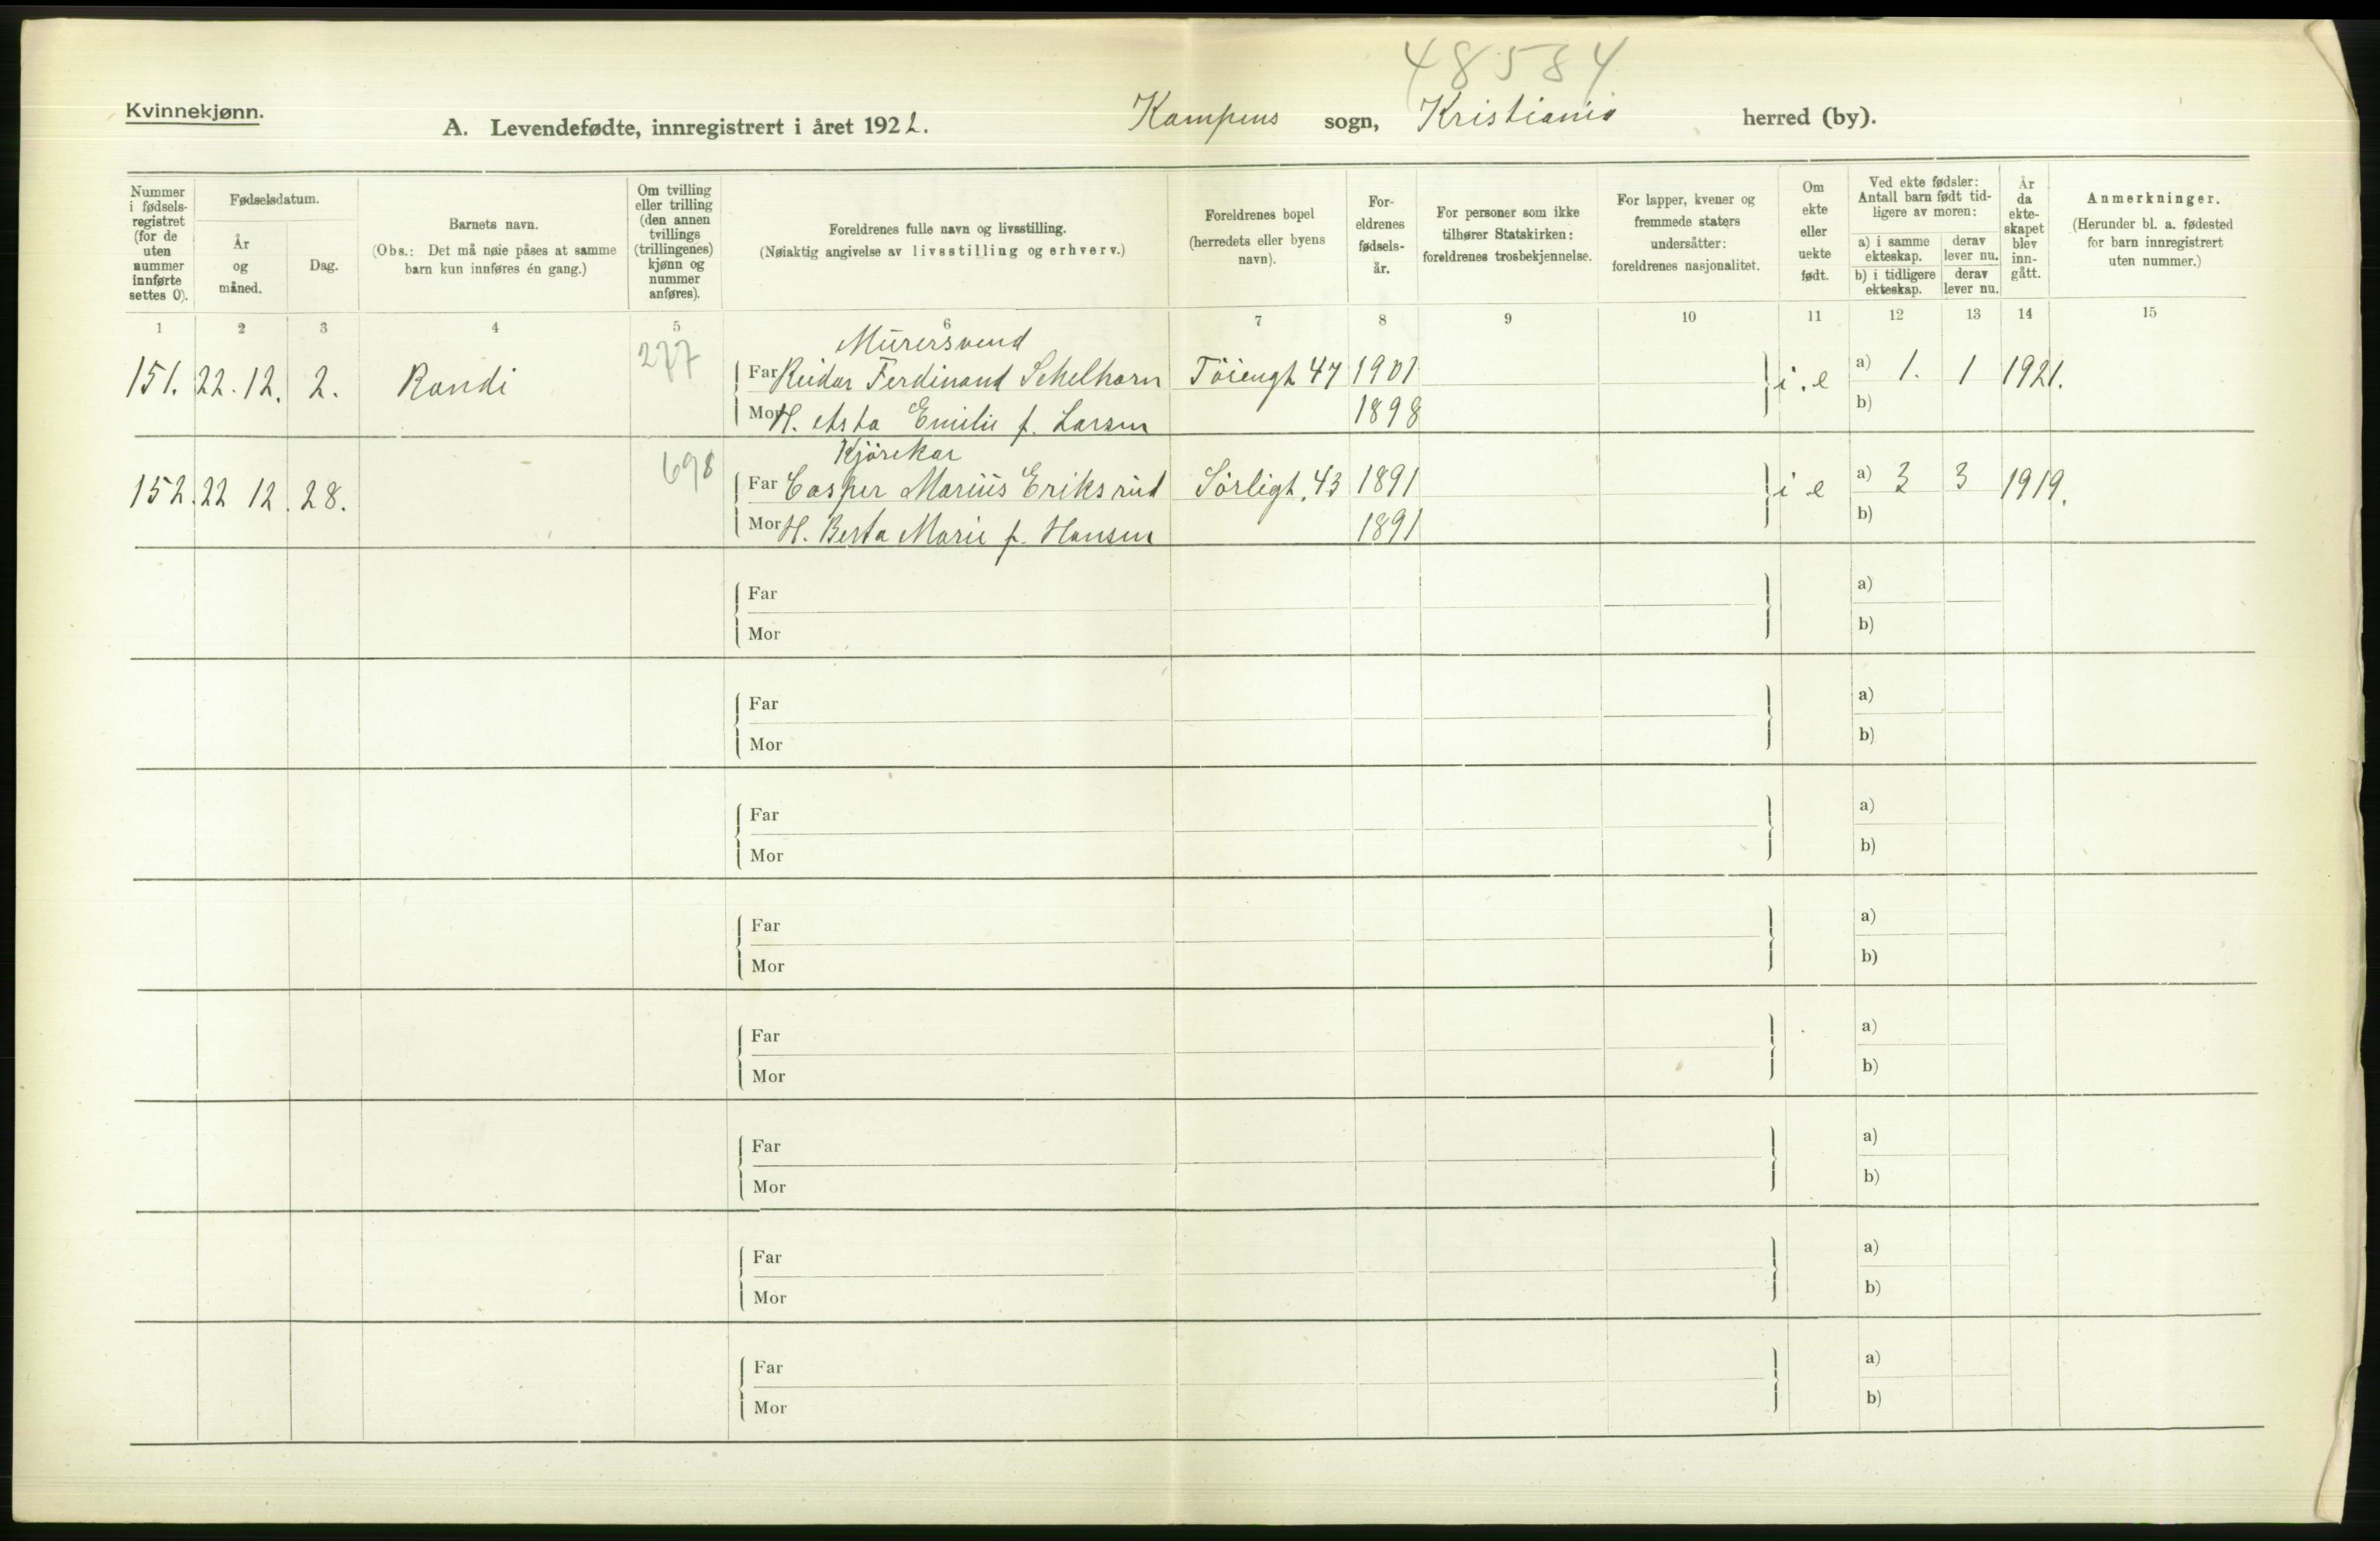 48584
Kvinnekjønn.
A. Levendefødte, innregistrert i året 1922.
Kampens sogn, Kristiania herred (by).
Nummer i fødsels-registret (for de uten nummer innførte settes 0).
Fødselsdatum.
År og måned.
Dag.
Barnets navn.
(Obs.: Det må nøie påses at samme barn kun innføres én gang.)
Om tvilling eller trilling (den annen tvillings (trillingenes) kjønn og nummer anføres).
Foreldrenes fulle navn og livsstilling.
(Nøiaktig angivelse av livsstilling og erhverv.)
Foreldrenes bopel (herredets eller byens navn).
For-eldrenes fødsels-år.
For personer som ikke tilhører Statskirken: foreldrenes trosbekjennelse.
For lapper, kvener og fremmede staters undersåtter: foreldrenes nasjonalitet.
Om ekte eller uekte født.
Ved ekte fødsler: Antall barn født tid-ligere av moren:
a) i samme ekteskap.
derav lever nu.
b) i tidligere ekteskap.
derav lever nu.
År da ekte-skapet blev inn-gått.
Anmerkninger.
(Herunder bl. a. fødested for barn innregistrert uten nummer.)
1 2 3 4 5 6 7 8 9 10 11 12 13 14 15
Murersvend
151. 22. 12. 2. Randi 277 Far Reidar Ferdinand Schelhorn Töiengt. 47 1901 i. e a) 1. 1 1921.
Mor H. Asta Emilie f. Larsen 1898 b)
Kjörekar
152. 22 12. 28. 698 Far Casper Marius Eriksrud Sörligt. 43 1891 i e a) 3 3 1919.
Mor H. Berta Marie f. Hansen 1891 b)
Far a)
Mor b)
Far a)
Mor b)
Far a)
Mor b)
Far a)
Mor b)
Far a)
Mor b)
Far a)
Mor b)
Far a)
Mor b)
Far a)
Mor b)